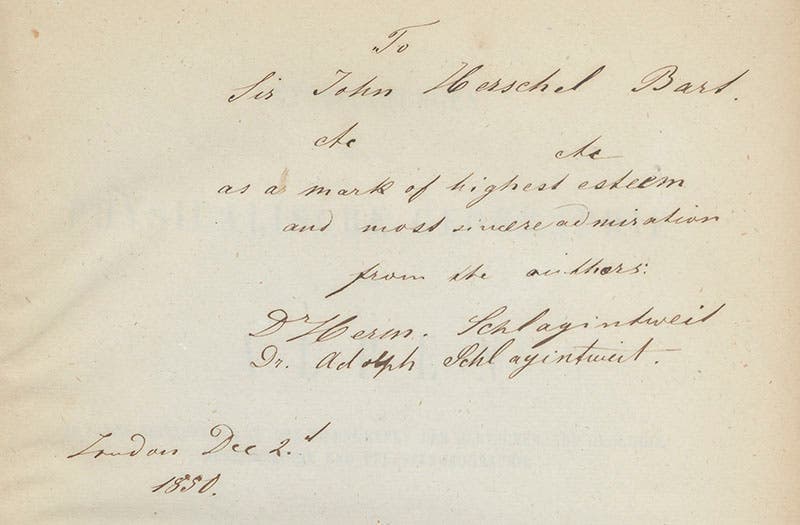 To
Sir John Herschel Bart.
etc etc
as a mark of highest esteem
and most sincere admiration
from the authors:
Dr Herm. Schlagintweit
Dr. Adolph Schlagintweit.
London Dec 2.d
1850.